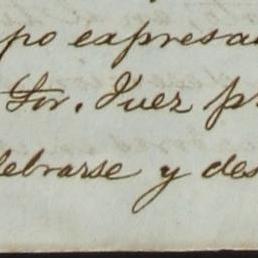 po expresa
Sor. Juez p
lebrarse y des